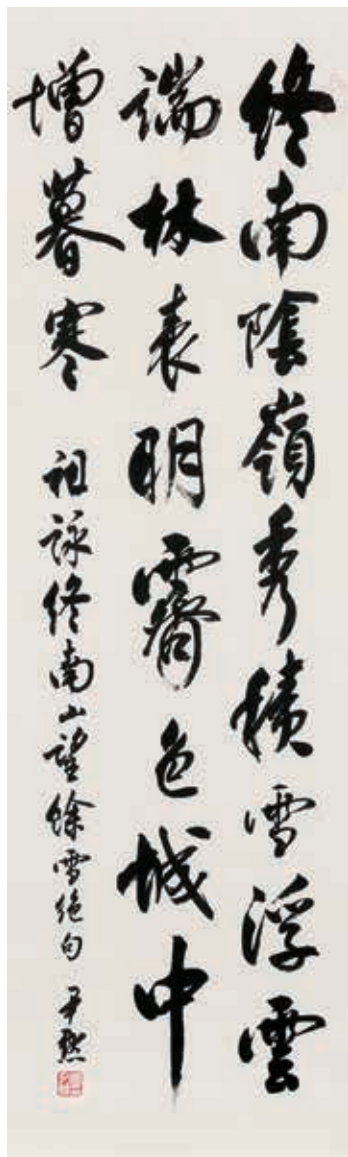 終南陰嶺秀積雪浮雲
端林表明霽色城中
增暮寒 祖詠終南山望餘雪絕句 尹默